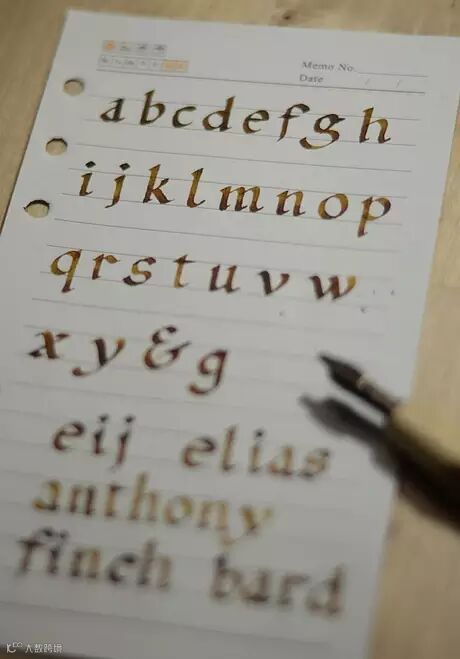 Memo No.
Date / /
a b c d e f g h
i j k l m n o p
q r s t u v w
x y & g
eij elias
anthony
finch bard
大数跨境